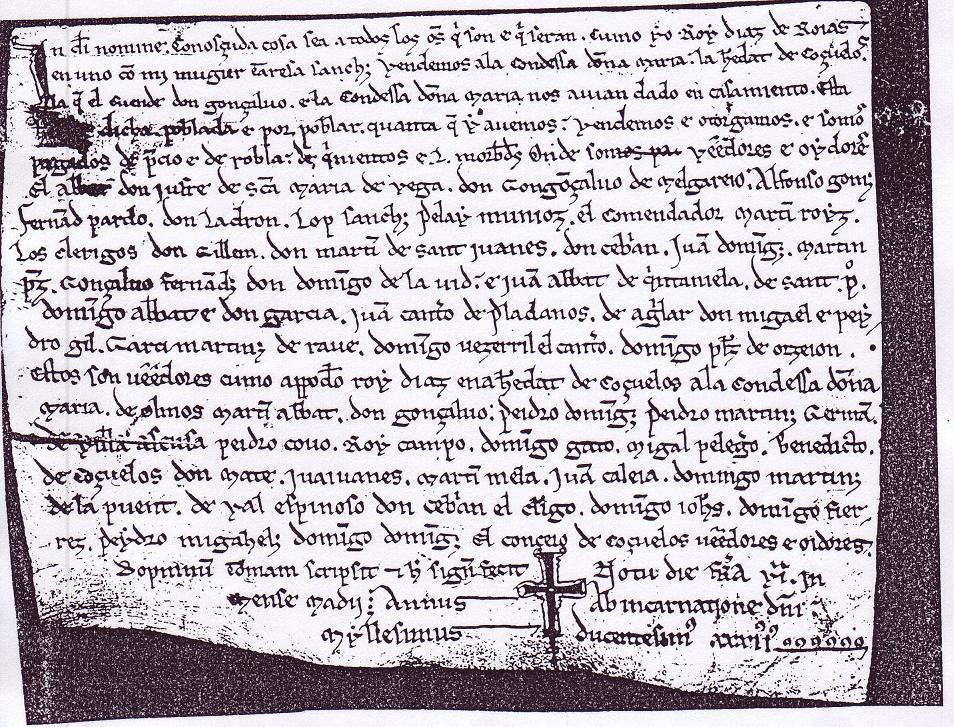 In dei nomine. Conosçuda cosa sea a todos los oms q̃ son e q̃ seran. Cumo yo Roy diaz de Roias
en uno cõ mi mugier Taresa sanch; vendemos ala Condessa dõna maria. la hedat de Coçuelos.
q̃ el Cuende don gonçaluo. e la Condessa dõna maria nos auian dado en casamiento. Esta
dicha poblada e por poblar. quanta q̃ y auemos: vendemos e otorgamos. e somos
pagados de p̃cio e de robla: de q̃nientos e L. morb̃ds Onde veedores e oydores
El abbat don juste de sc̃a maria de vega. don Gongõçaluo de melgareio. Alfonso gom;
fernãd pardo. don Ladron. Lop sanch; pelay munioz. el Comendador martĩ royz.
Los clerigos don Gillem. don martĩ de sant juanes. don cebriã. Juã domĩg;. martin
pz. Gonçaluo fernãd; don domĩgo de la uid. e juã abbat de q̃ntaniela. de sant p̃o.
domĩgo abbat e don garcia. juã cantõ de pladanos. de ag̃lar don migael e pey
dro gil. Garci martin; de raue. domĩgo vezerril el cantõ. domĩgo phz de orzeion.
Estos son veedores cumo apodo roy diaz ena hedat de Coçuelos a la condessa dõna
maria. de olmos martĩ abbat. don gonçaluo. peidro domĩg; peidro martin; Germã.
de villa escusa peidro couo. Roy campo. domĩgo gato. migal peleg̃o. benedicto.
de coçuelos don mate. juaiuanes. martĩ mela. juã caleia. domingo martin;
de la puent. de val espinoso don cebriã el cl̃igo. domĩgo iohs. domĩgo fier
rez. peydro migahel; domĩgo domĩg; El conceio de coçuelos veedores e oidores.
Dopninũ Tomam scripsit & h̃ signũ fecit Notũ die fr̃ia vi. In
mense madii: Annus Ab incarnatione dñi
Myllesimus ducentesim9